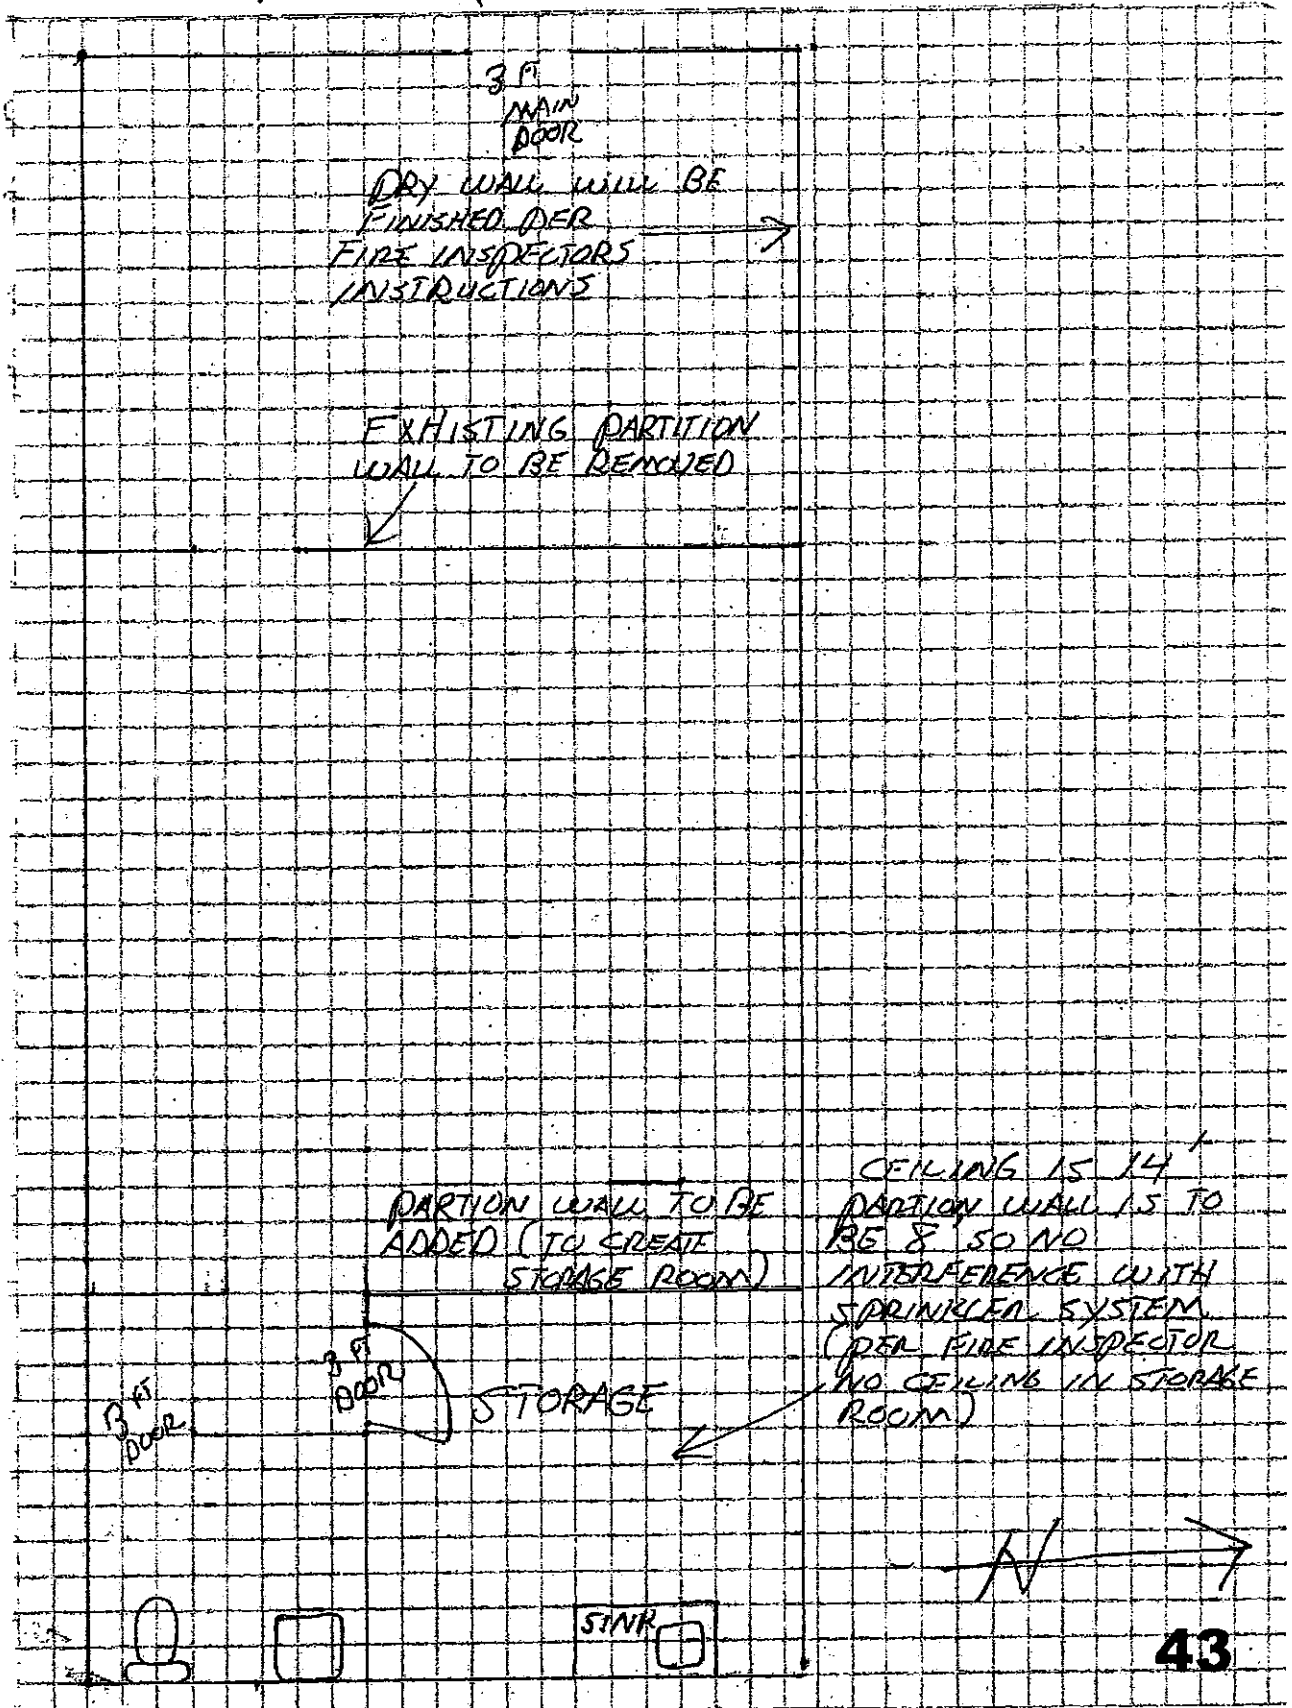 3 FT
MAIN
DOOR
DRY WALL WILL BE
FINISHED PER
FIRE INSPECTORS
INSTRUCTIONS
EXHISTING PARTITION
WALL TO BE REMOVED
PARTION WALL TO BE
ADDED (TO CREATE
STORAGE ROOM)
CEILING IS 14'
PARTION WALL IS TO
BE 8' SO NO
INTERFERENCE WITH
SPRINKLER SYSTEM
(PER FIRE INSPECTOR
NO CEILING IN STORAGE
ROOM)
3 FT
DOOR
STORAGE
3 FT
DOOR
N
SINK
43